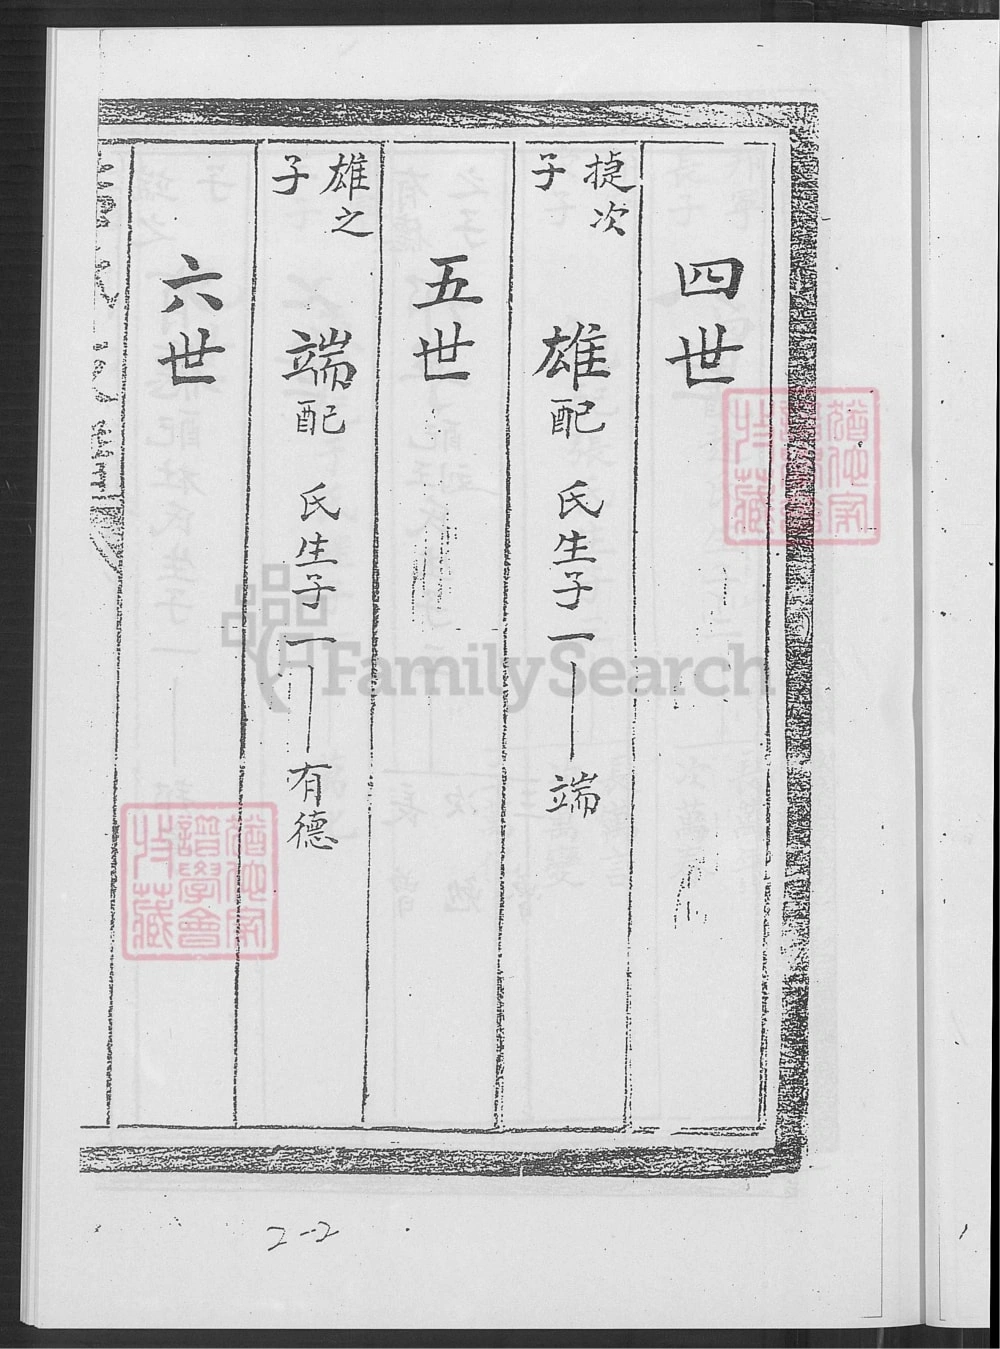 四世
捷次子
雄配　氏生子一—端
五世
雄之子
端配　氏生子一—有德
六世
譜學會
特藏
FamilySearch
2-2